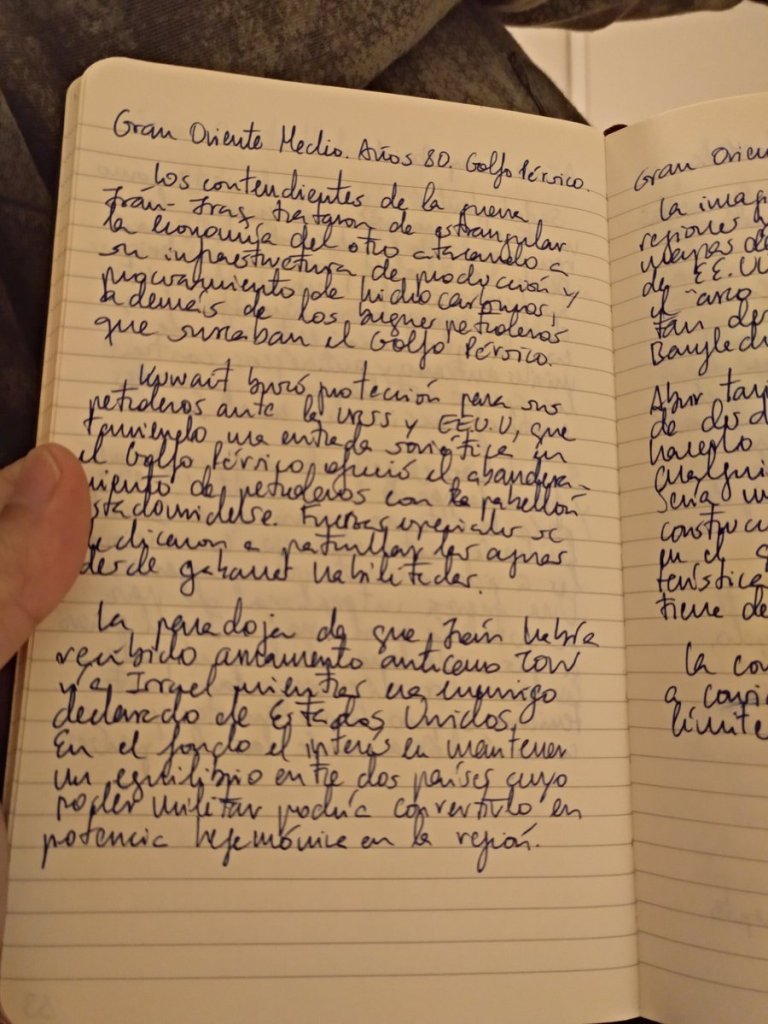 Gran Oriente Medio. Años 80. Golfo Pérsico.
Los contendientes de la guerra
Irán-Iraq trataron de estrangular
la economía del otro atacando a
su infraestructura de producción y
procesamiento de hidrocarburos,
además de los buques petroleros
que surcaban el Golfo Pérsico.
Kuwait buscó protección para sus
petroleros ante la URSS y EEU.U, que
temiendo una entrada soviética en
el Golfo Pérsico, ofreció el abandera-
miento de petroleros con pabellón
estadounidense. Fuerzas especiales se
dedicaron a patrullar las aguas
desde gabarras habilitadas.
La paradoja de que Irán había
recibido armamento anticarro TOW
vía Israel mientras era enemigo
declarado de Estados Unidos.
En el fondo el interés en mantener
un equilibrio entre dos países cuyo
poder militar podría convertirlo en
potencia hegemónica en la región.
Gran Orien
La imag
regiones
mapas de
de EE.UU
el "arco
tan des
Banglad
Abur
de dos
hacerlo
cualqui
Sería un
construc
en el
terística
tiene de
La co
a consi
límite